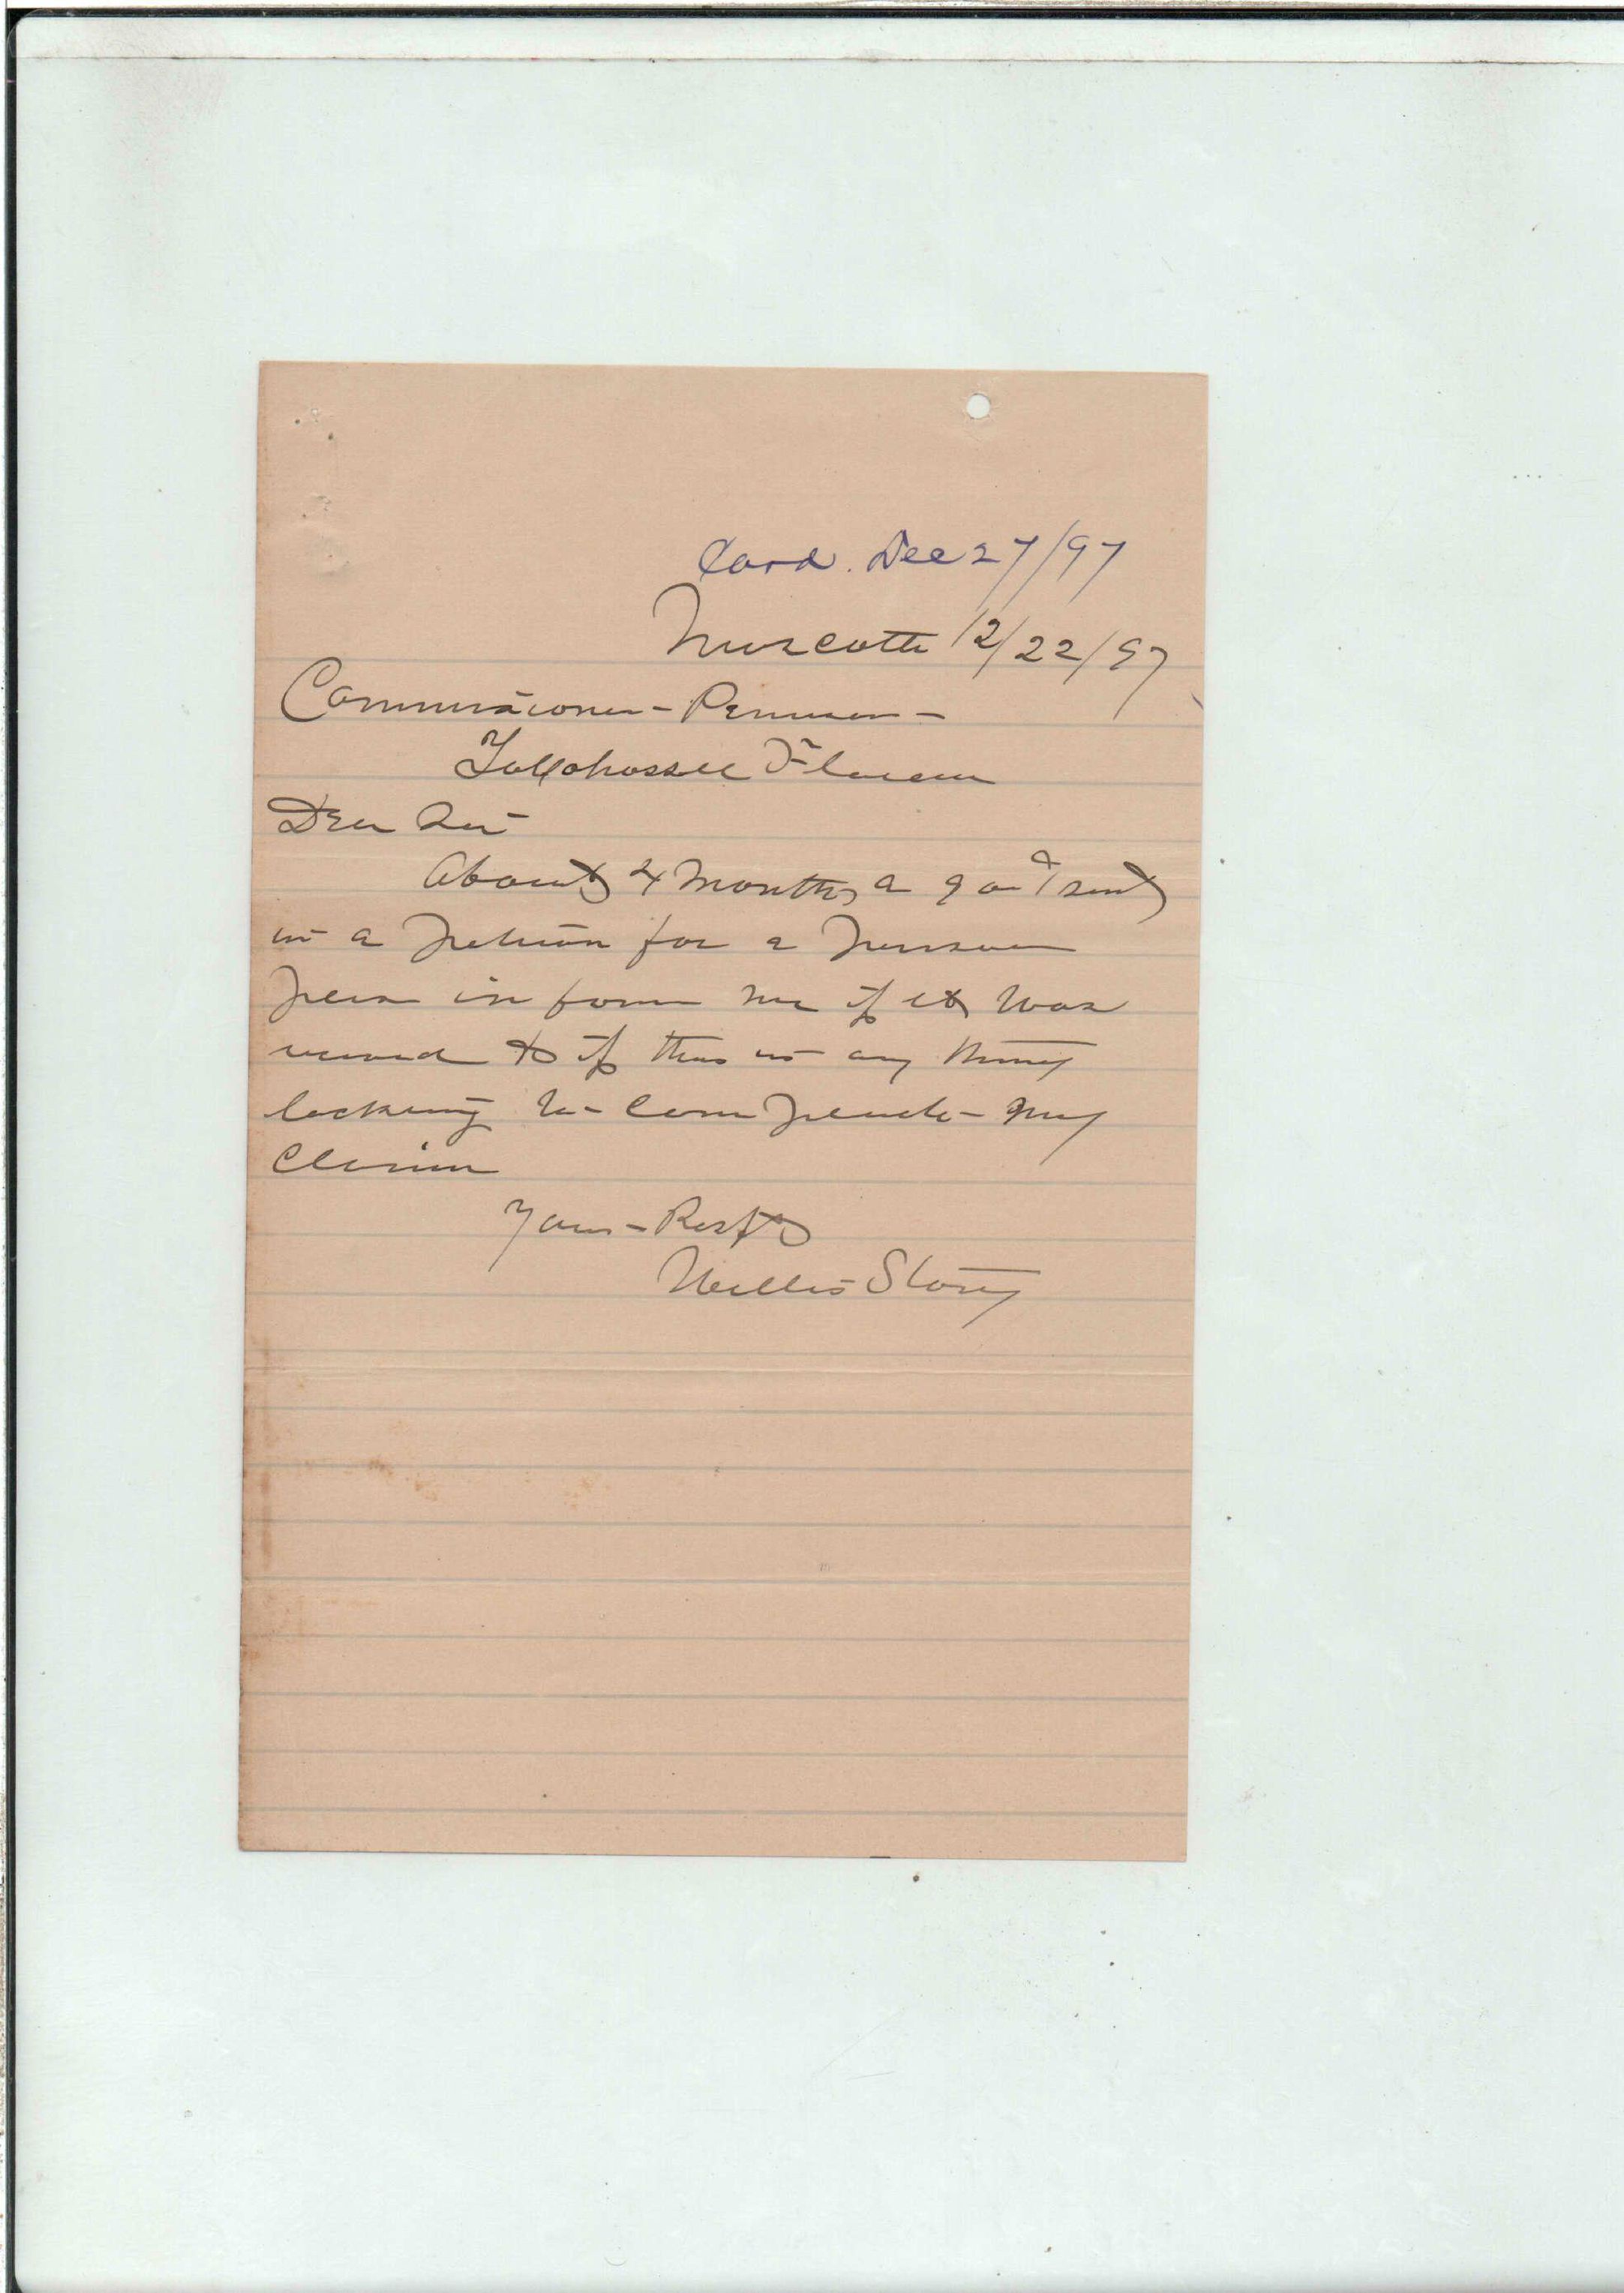 Card. Dec 27/97
Muscotte 12/22/97
Commissioner - Pension -
Tallahassee Florida
Dear Sir
About 4 Months a go I sent
in a petition for a pension
pleas in form me if it was
received & if there is any thing
lacking to - complete - my
Claim
Yours - Resft
Willis Story